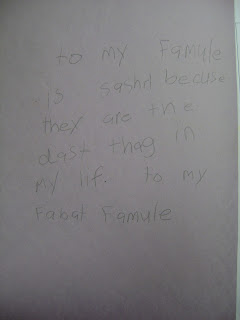 to my Famule
is sashl becuse
they are the
dast thag in
my lif. to my
Fabat Famule